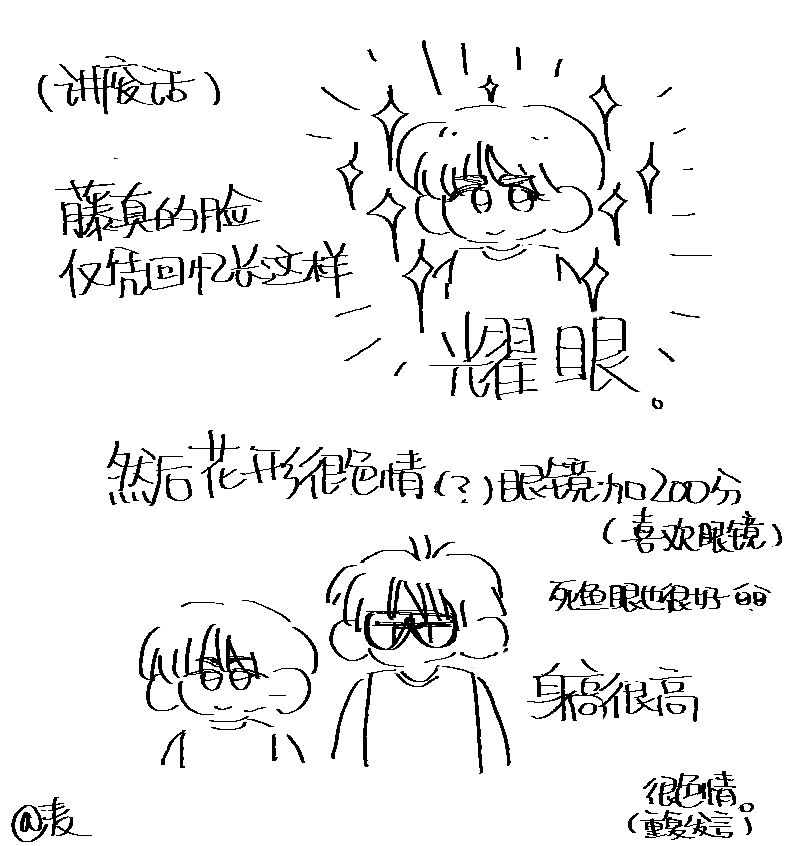 （讲废话）
藤真的脸
仅凭回忆长这样
耀眼。
然后花形很色情（？）眼镜加200分
（喜欢眼镜）
死鱼眼也很好
身高很高
很色情。
（重复发言）
@麦